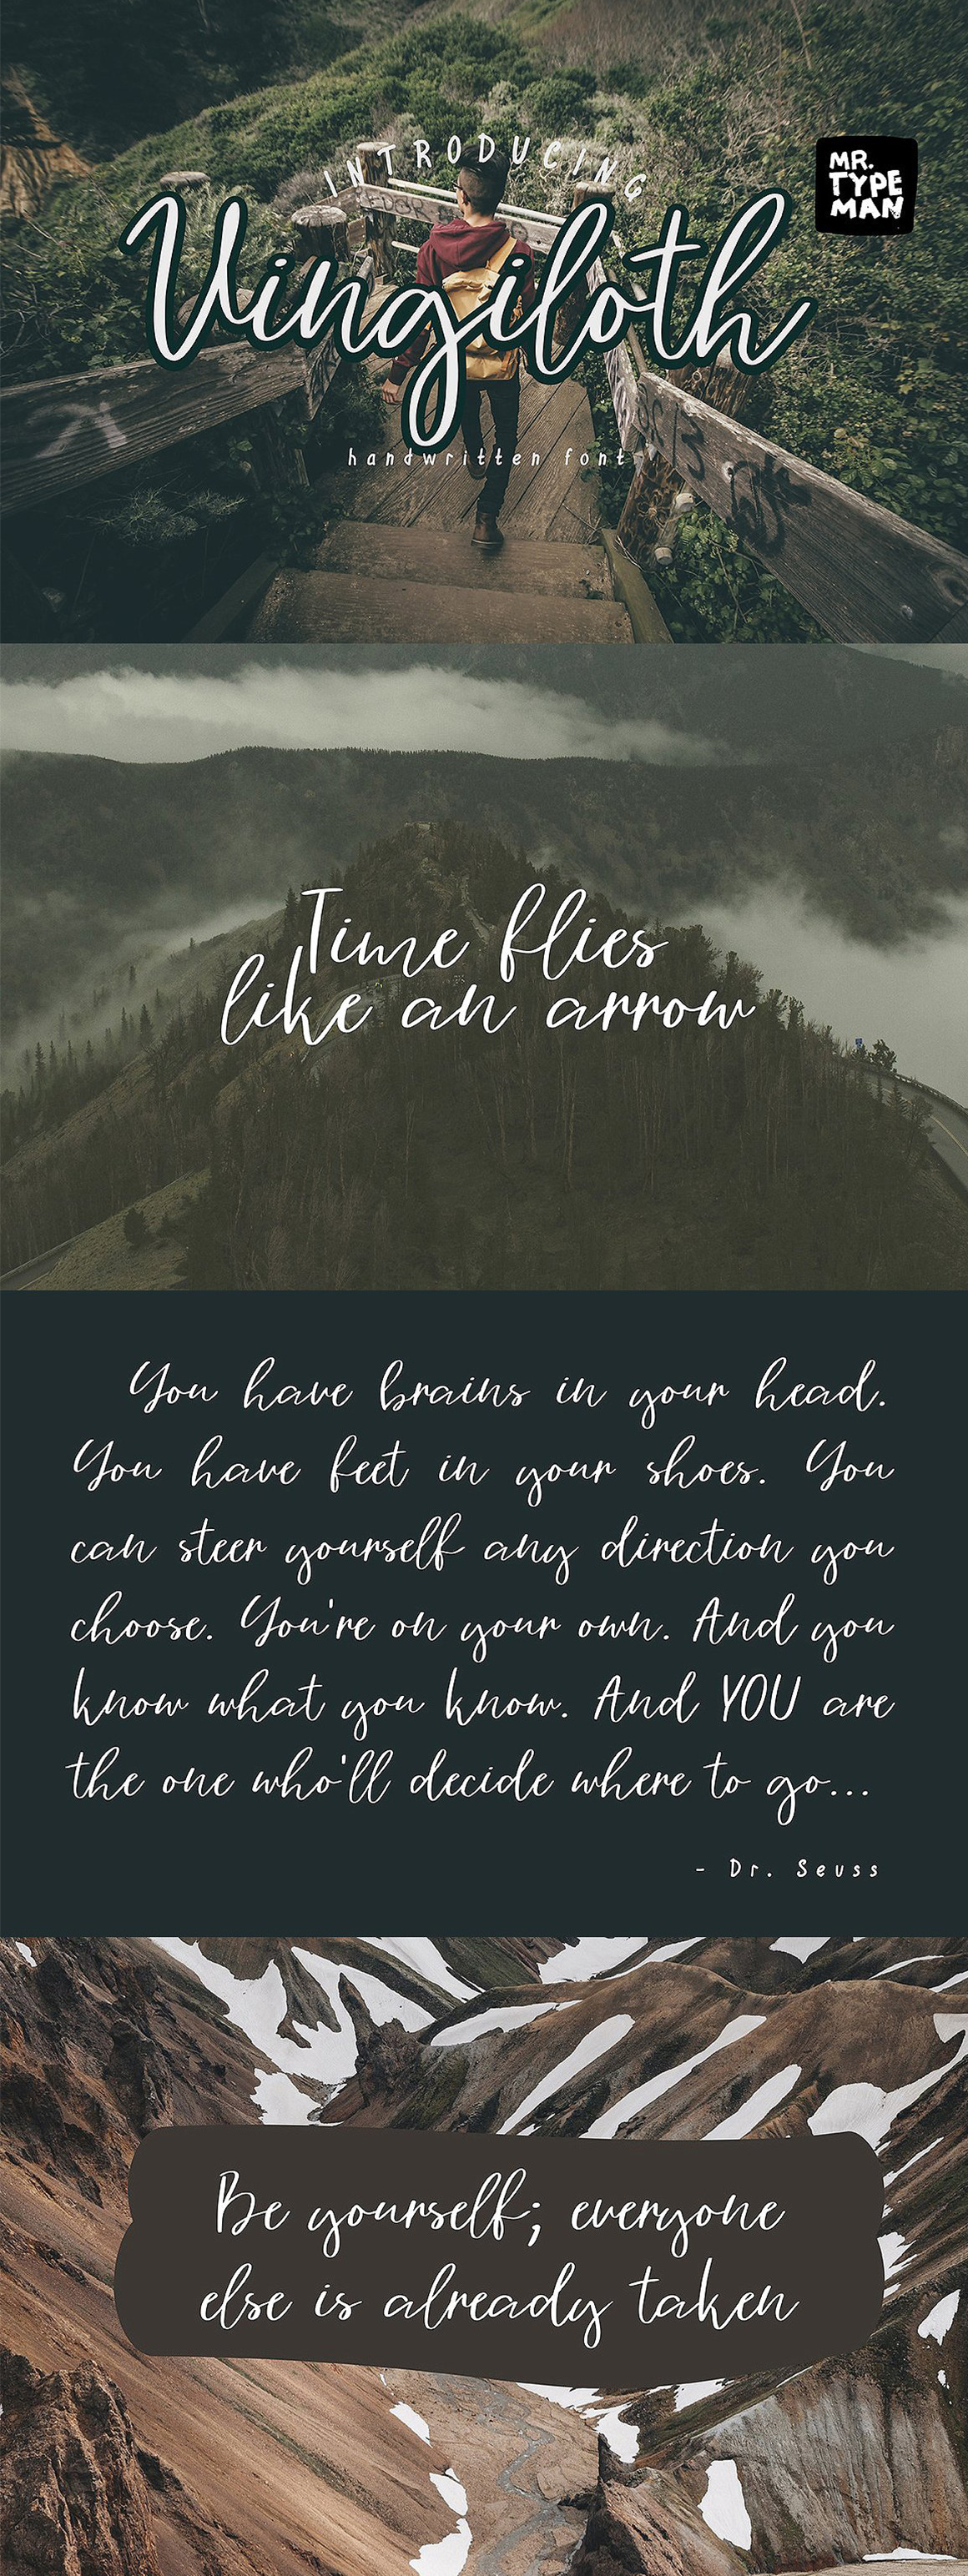 INTRODUCING
MR.
TYPE
MAN
Vingiloth
handwritten font
Time flies
like an arrow
You have brains in your head.
You have feet in your shoes. You
can steer yourself any direction you
choose. You're on your own. And you
know what you know. And YOU are
the one who'll decide where to go...
- Dr. Seuss
Be yourself; everyone
else is already taken